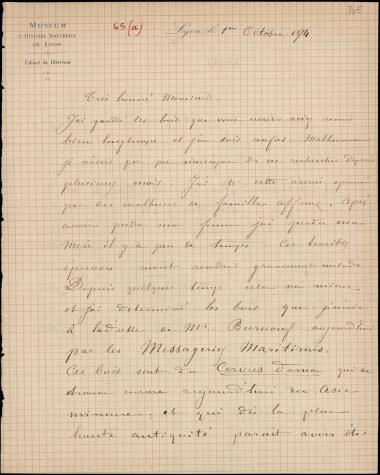 MUSEUM
D'HISTOIRE NATURELLE
DE LYON
Cabinet du Directeur
65 (a)
365
Lyon, le 1er Octobre 1874
Très honoré Monsieur.
J'ai gardé les bois que vous m'aviez remis
bien longtemps et j'en suis confus. Malheureusement
je n'avais pas pu m'occuper de ces recherches depuis
plusieurs mois. J'ai été cette année éprouvé
par des malheurs de famille affreux. Après
avoir perdu ma femme j'ai perdu ma
Mère il y a peu de temps. Ces terribles
épreuves m'ont rendu gravement malade
Depuis quelque temps cela va mieux
et j'ai déterminé les bois que j'envoie
à l'adresse de Mr. Burnouf aujourd'hui
par les Messageries Maritimes.
Ces bois sont du Cervus dama qui se
trouve encore aujourd'hui en Asie
mineure. et qui dès la plus
haute antiquité parait avoir été